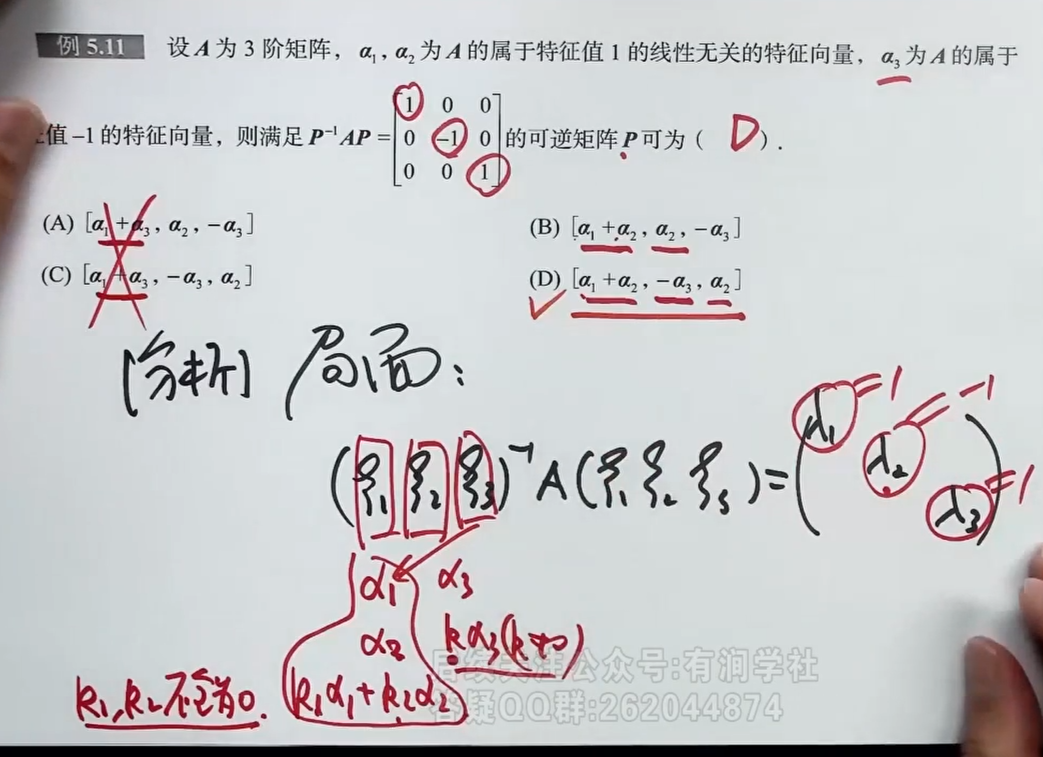 例 5.11 设 A 为 3 阶矩阵，α₁, α₂ 为 A 的属于特征值 1 的线性无关的特征向量，α₃ 为 A 的属于
值 −1 的特征向量，则满足 P⁻¹AP = [1 0 0; 0 −1 0; 0 0 1] 的可逆矩阵 P 可为（ D ）.
(A) [α₁ + α₃, α₂, −α₃] (B) [α₁ + α₂, α₂, −α₃]
(C) [α₁ + α₃, −α₃, α₂] (D) [α₁ + α₂, −α₃, α₂]
[分析] 局面：
(ξ₁ ξ₂ ξ₃)⁻¹ A (ξ₁ ξ₂ ξ₃) = (λ₁ = 1 λ₂ = −1 λ₃ = 1)
α₁ α₃
α₂ kα₃(k≠0)
k₁, k₂ 不全为0. k₁α₁ + k₂α₂
后续关注公众号:有润学社
答疑QQ群:262044874